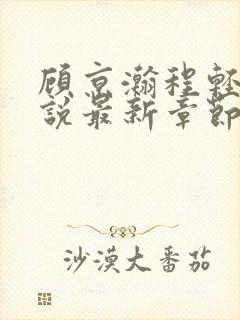 顾京瀚程轻
說最新章節
沙漠大番茄